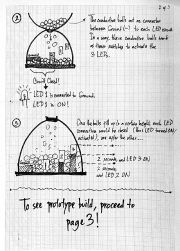 2 of 3
2
The conductive balls act as connectors
between Ground (-) to each LED
In a way, these conductive balls
as these switches to activate the
3 LEDs.
Circuit Closed!
LED 1 is connected to Ground.
LED 1 is ON!
3
Once the balls fill up to a certain height, each LED
connection would be closed (thus LED turned ON,
activated), one after the other...
2 seconds, and LED 3 ON
2 seconds,
and LED 2 ON
To see prototype build, proceed to
page 3!